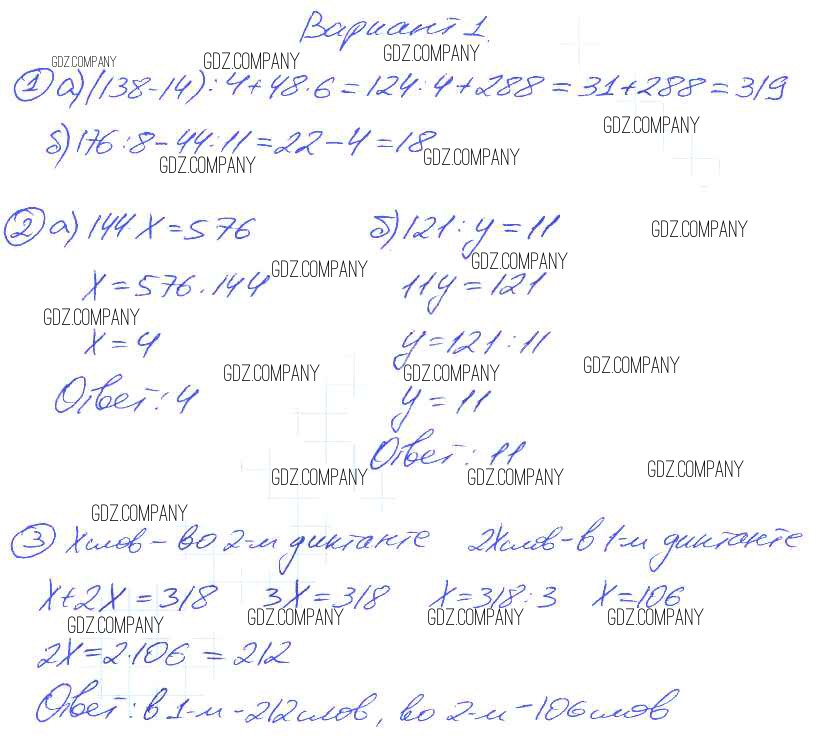 Вариант 1.
GDZ.COMPANY GDZ.COMPANY GDZ.COMPANY
① а) (138-14):4+48·6=124:4+288=31+288=319
GDZ.COMPANY
б) 176:8-44:11=22-4=18
GDZ.COMPANY GDZ.COMPANY
② а) 144·x=576 б) 121:y=11
GDZ.COMPANY
GDZ.COMPANY GDZ.COMPANY
x=576.144 11y=121
GDZ.COMPANY
x=4 y=121:11
GDZ.COMPANY GDZ.COMPANY GDZ.COMPANY
Ответ: 4 y=11
Ответ: 11
GDZ.COMPANY GDZ.COMPANY GDZ.COMPANY
GDZ.COMPANY
③ x слов - во 2-м диктанте 2x слов - в 1-м диктанте
x+2x=318 3x=318 x=318:3 x=106
GDZ.COMPANY GDZ.COMPANY GDZ.COMPANY GDZ.COMPANY
2x=2·106=212
Ответ: в 1-м - 212 слов, во 2-м - 106 слов